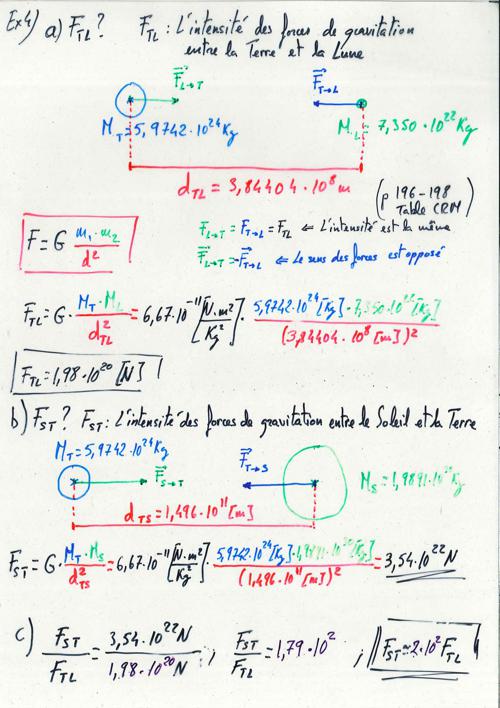 Ex4) a) F_TL ? F_TL : L'intensité des forces de gravitation
entre la Terre et la Lune
F⃗_L→T F⃗_T→L
M_T = 5,9742·10^24 Kg M_L = 7,350·10^22 Kg
d_TL = 3,84404·10^8 m
(p 196-198
Table CRM)
F_L→T = F_T→L = F_TL ⇐ L'intensité est la même
F = G m₁·m₂/d²
F⃗_L→T = -F⃗_T→L ⇐ Le sens des forces est opposé
F_TL = G · M_T·M_L/d_TL² = 6,67·10^-11 [N·m²/Kg²] · 5,9742·10^24 [Kg]·7,350·10^22 [Kg]/(3,84404·10^8 [m])²
F_TL = 1,98·10^20 [N]
b) F_ST ? F_ST : L'intensité des forces de gravitation entre le Soleil et la Terre
M_T = 5,9742·10^24 Kg
F⃗_S→T F⃗_T→S
M_S = 1,9891·10^30 Kg
d_TS = 1,496·10^11 [m]
F_ST = G · M_T·M_S/d_TS² = 6,67·10^-11 [N·m²/Kg²] · 5,9742·10^24 [Kg]·1,9891·10^30 [Kg]/(1,496·10^11 [m])² = 3,54·10^22 N
c) F_ST/F_TL = 3,54·10^22 N/1,98·10^20 N ; F_ST/F_TL = 1,79·10^2 ; F_ST ≈ 2·10^2 F_TL